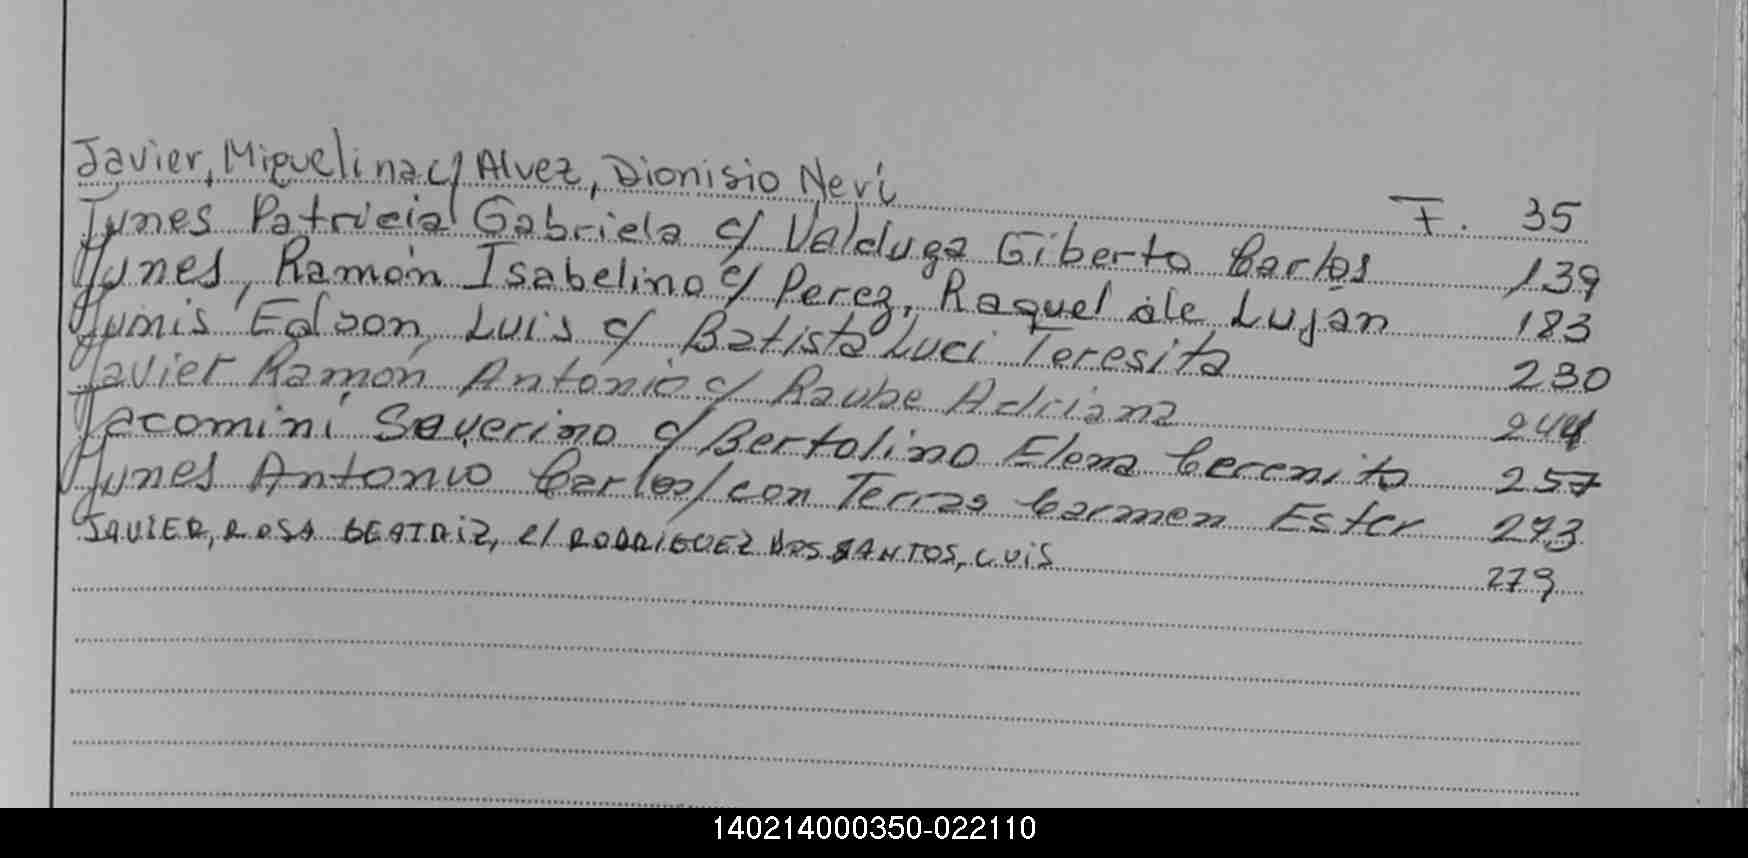 Javier, Miguelina c/ Alvez, Dionisio Neri F. 35
Junes Patricia Gabriela c/ Valduga Giberto Carlos 139
Junes, Ramón Isabelino c/ Perez, Raquel de Lujan 183
Junis Edson, Luis c/ Batista Luci Teresita 230
Javier Ramón Antonio c/ Raube Adriana 244
Jacomini Severino c/ Bertolino Elena Cerenita 257
Junes Antonio Carlos/con Terras Carmen Ester 273
JAVIER, ROSA BEATRIZ, c/ RODRIGUEZ DOS SANTOS, LUIS 279
140214000350-022110